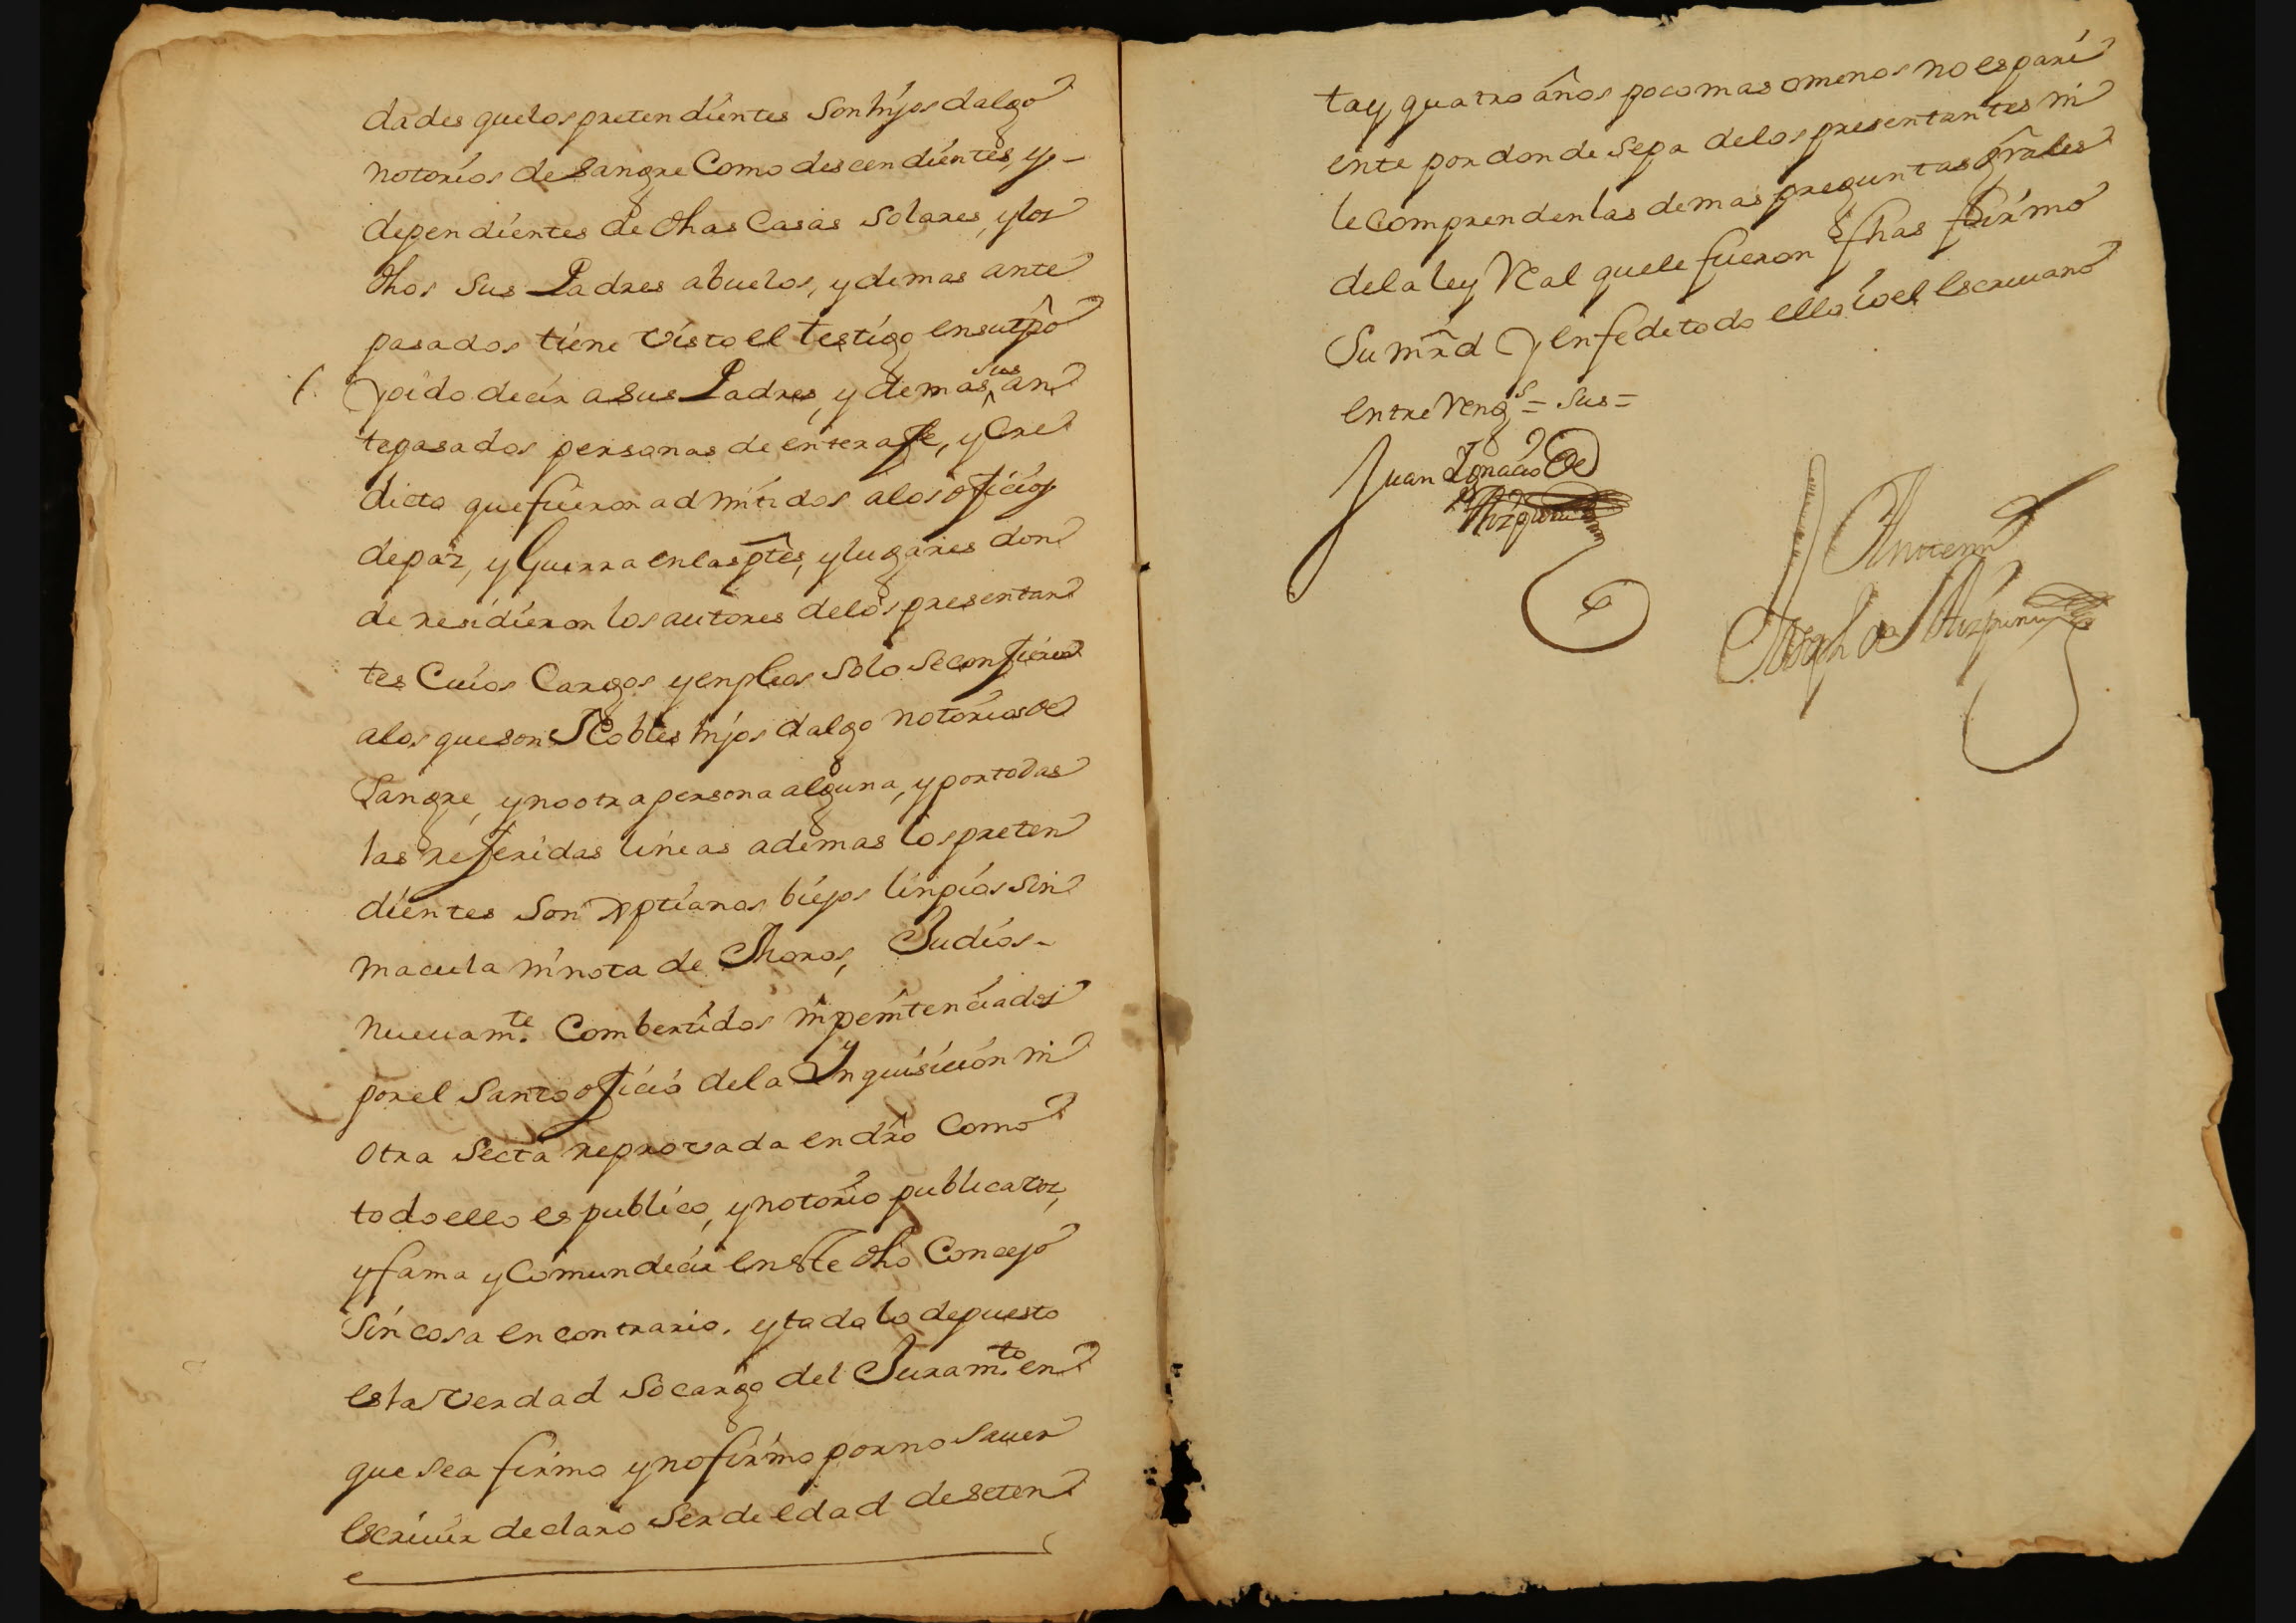 dades que los pretendientes son hijos dalgo
notorios de sangre Como descendientes, y -
dependientes de dhas Casas Solares, y los
dhos Sus Padres abuelos, y demas ante
pasados tiene visto el testigo en su tpo
Y oido decir a sus Padres, y demas sus an
tepasados personas de entera fe, y Cre
dicto que fueron admitidos a los oficios
de paz, y Guerra en las ptes, y lugares don
de residieron los autores de los presentan
tes Cuios Cargos y enpleos solo se confieren
a los que son Nobles hijos dalgo notorios de
Sangre, y no otra persona alguna, y por todas
las referidas lineas ademas los preten
dientes son xptianos biejos linpios sin
macula ni nota de Moros, Judios -
nuevamte. Combertidos ni penitenciados
por el Santo oficio de la Ynquisicion ni
otra Secta reprovada en dro Como
todo ello es publico, y notorio publica voz,
y fama y Comun decir en este dho Concejo
Sin cosa en contrario. y toda lo depuesto
es la verdad so cargo del Juramto. en
que sea firmo y no firmo por no saver
escrivir declaro ser de edad de seten
ta y quatro años poco mas o menos no es pari
ente por donde sepa de los presentantes ni
le comprenden las demas preguntas grales
de la ley Real que le fueron fhas firmo
Su mrd Y en fe de todo ello io el escrivano
entre Rengs = sus =
Juan Ignacio de
Antemi
Joseph de